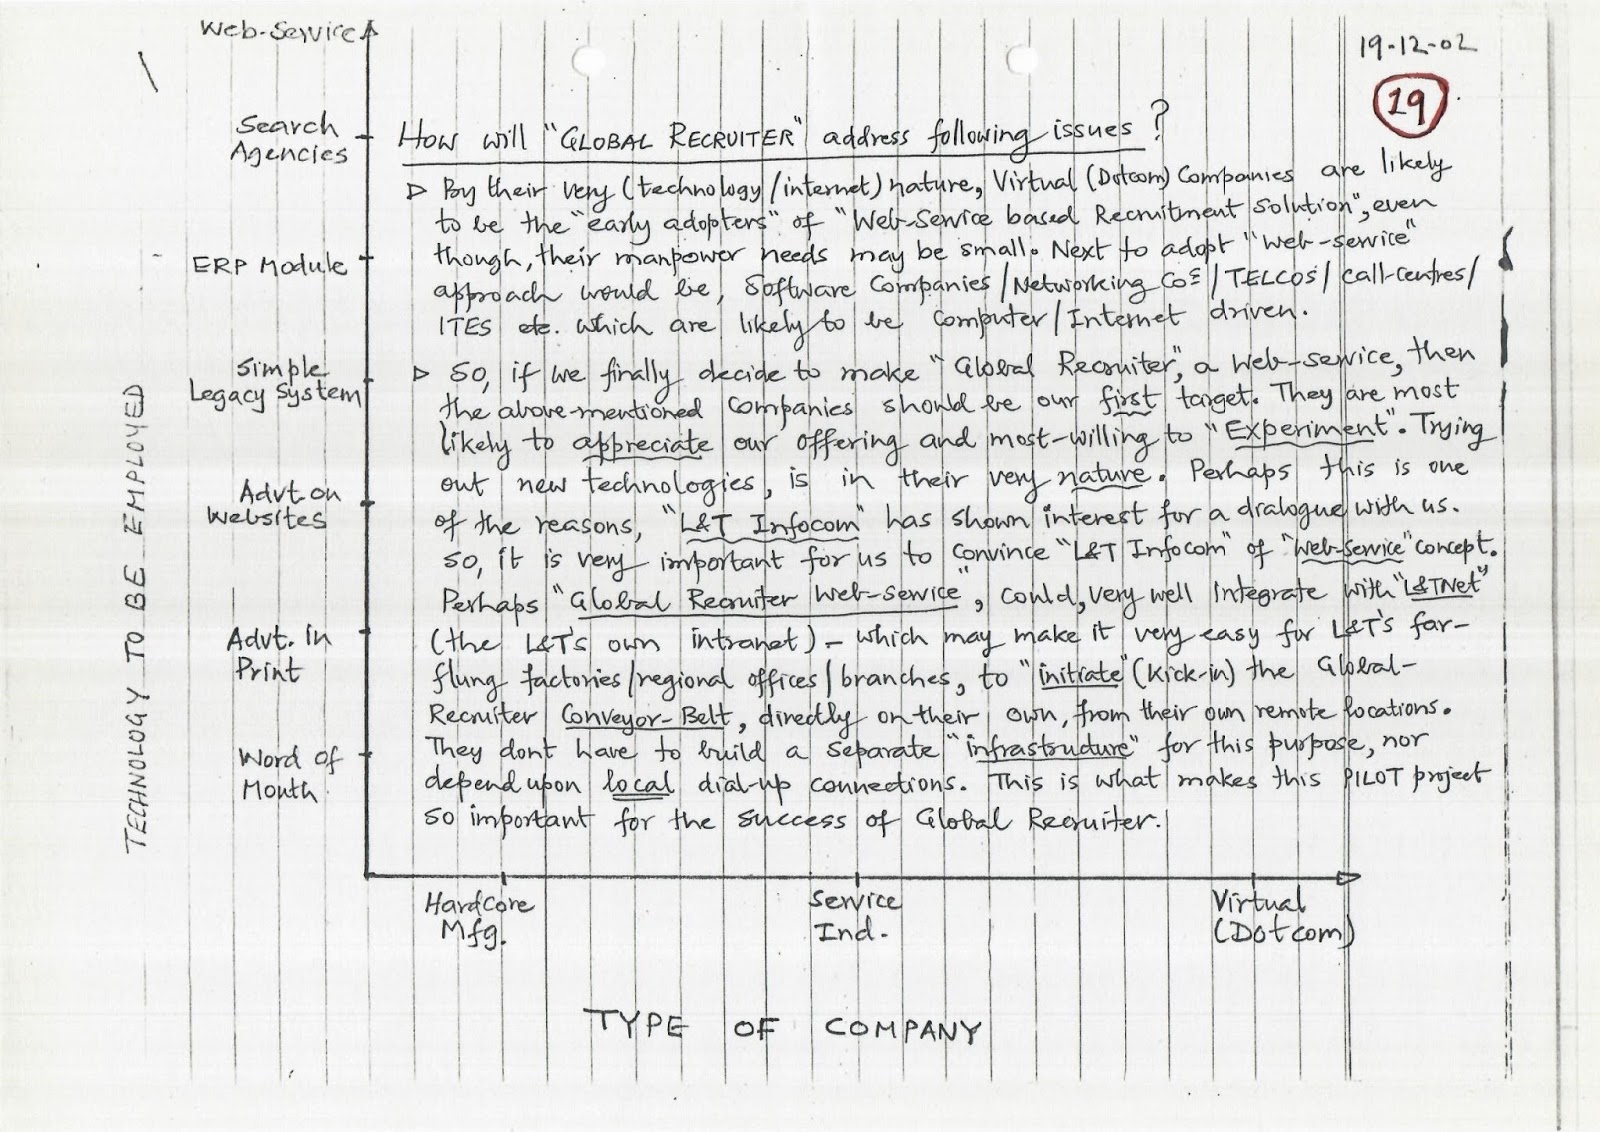 Web-Service
19-12-02
19
Search
Agencies
HOW will "GLOBAL RECRUITER" address following issues?
▷ By their very (technology/internet) nature, Virtual (Dotcom) Companies are likely
to be the "early adopters" of "Web-Service based Recruitment Solution", even
though, their manpower needs may be small. Next to adopt "Web-service"
approach would be, Software Companies/Networking Cos/TELCOS/call-centres/
ITES etc. which are likely to be Computer/Internet driven.
ERP Module
Simple
Legacy System
▷ So, if we finally decide to make "Global Recruiter", a Web-service, then
the above-mentioned Companies should be our first target. They are most
likely to appreciate our offering and most-willing to "Experiment". Trying
out new technologies, is in their very nature. Perhaps this is one
of the reasons, "L&T Infocom" has shown interest for a dialogue with us.
So, it is very important for us to convince "L&T Infocom" of "Web-Service" concept.
Perhaps "Global Recruiter Web-service", could, very well integrate with "L&TNet"
(the L&T's own intranet) - which may make it very easy for L&T's far-
flung factories/regional offices/branches, to "initiate" (Kick-in) the Global-
Recruiter Conveyor-Belt, directly on their own, from their own remote locations.
They dont have to build a separate "infrastructure" for this purpose, nor
depend upon local dial-up connections. This is what makes this PILOT project
so important for the success of Global Recruiter.
Advt. on
Websites
Advt. in
Print
Word of
Month
TECHNOLOGY TO BE EMPLOYED
Hardcore
Mfg.
Service
Ind.
Virtual
(Dotcom)
TYPE OF COMPANY